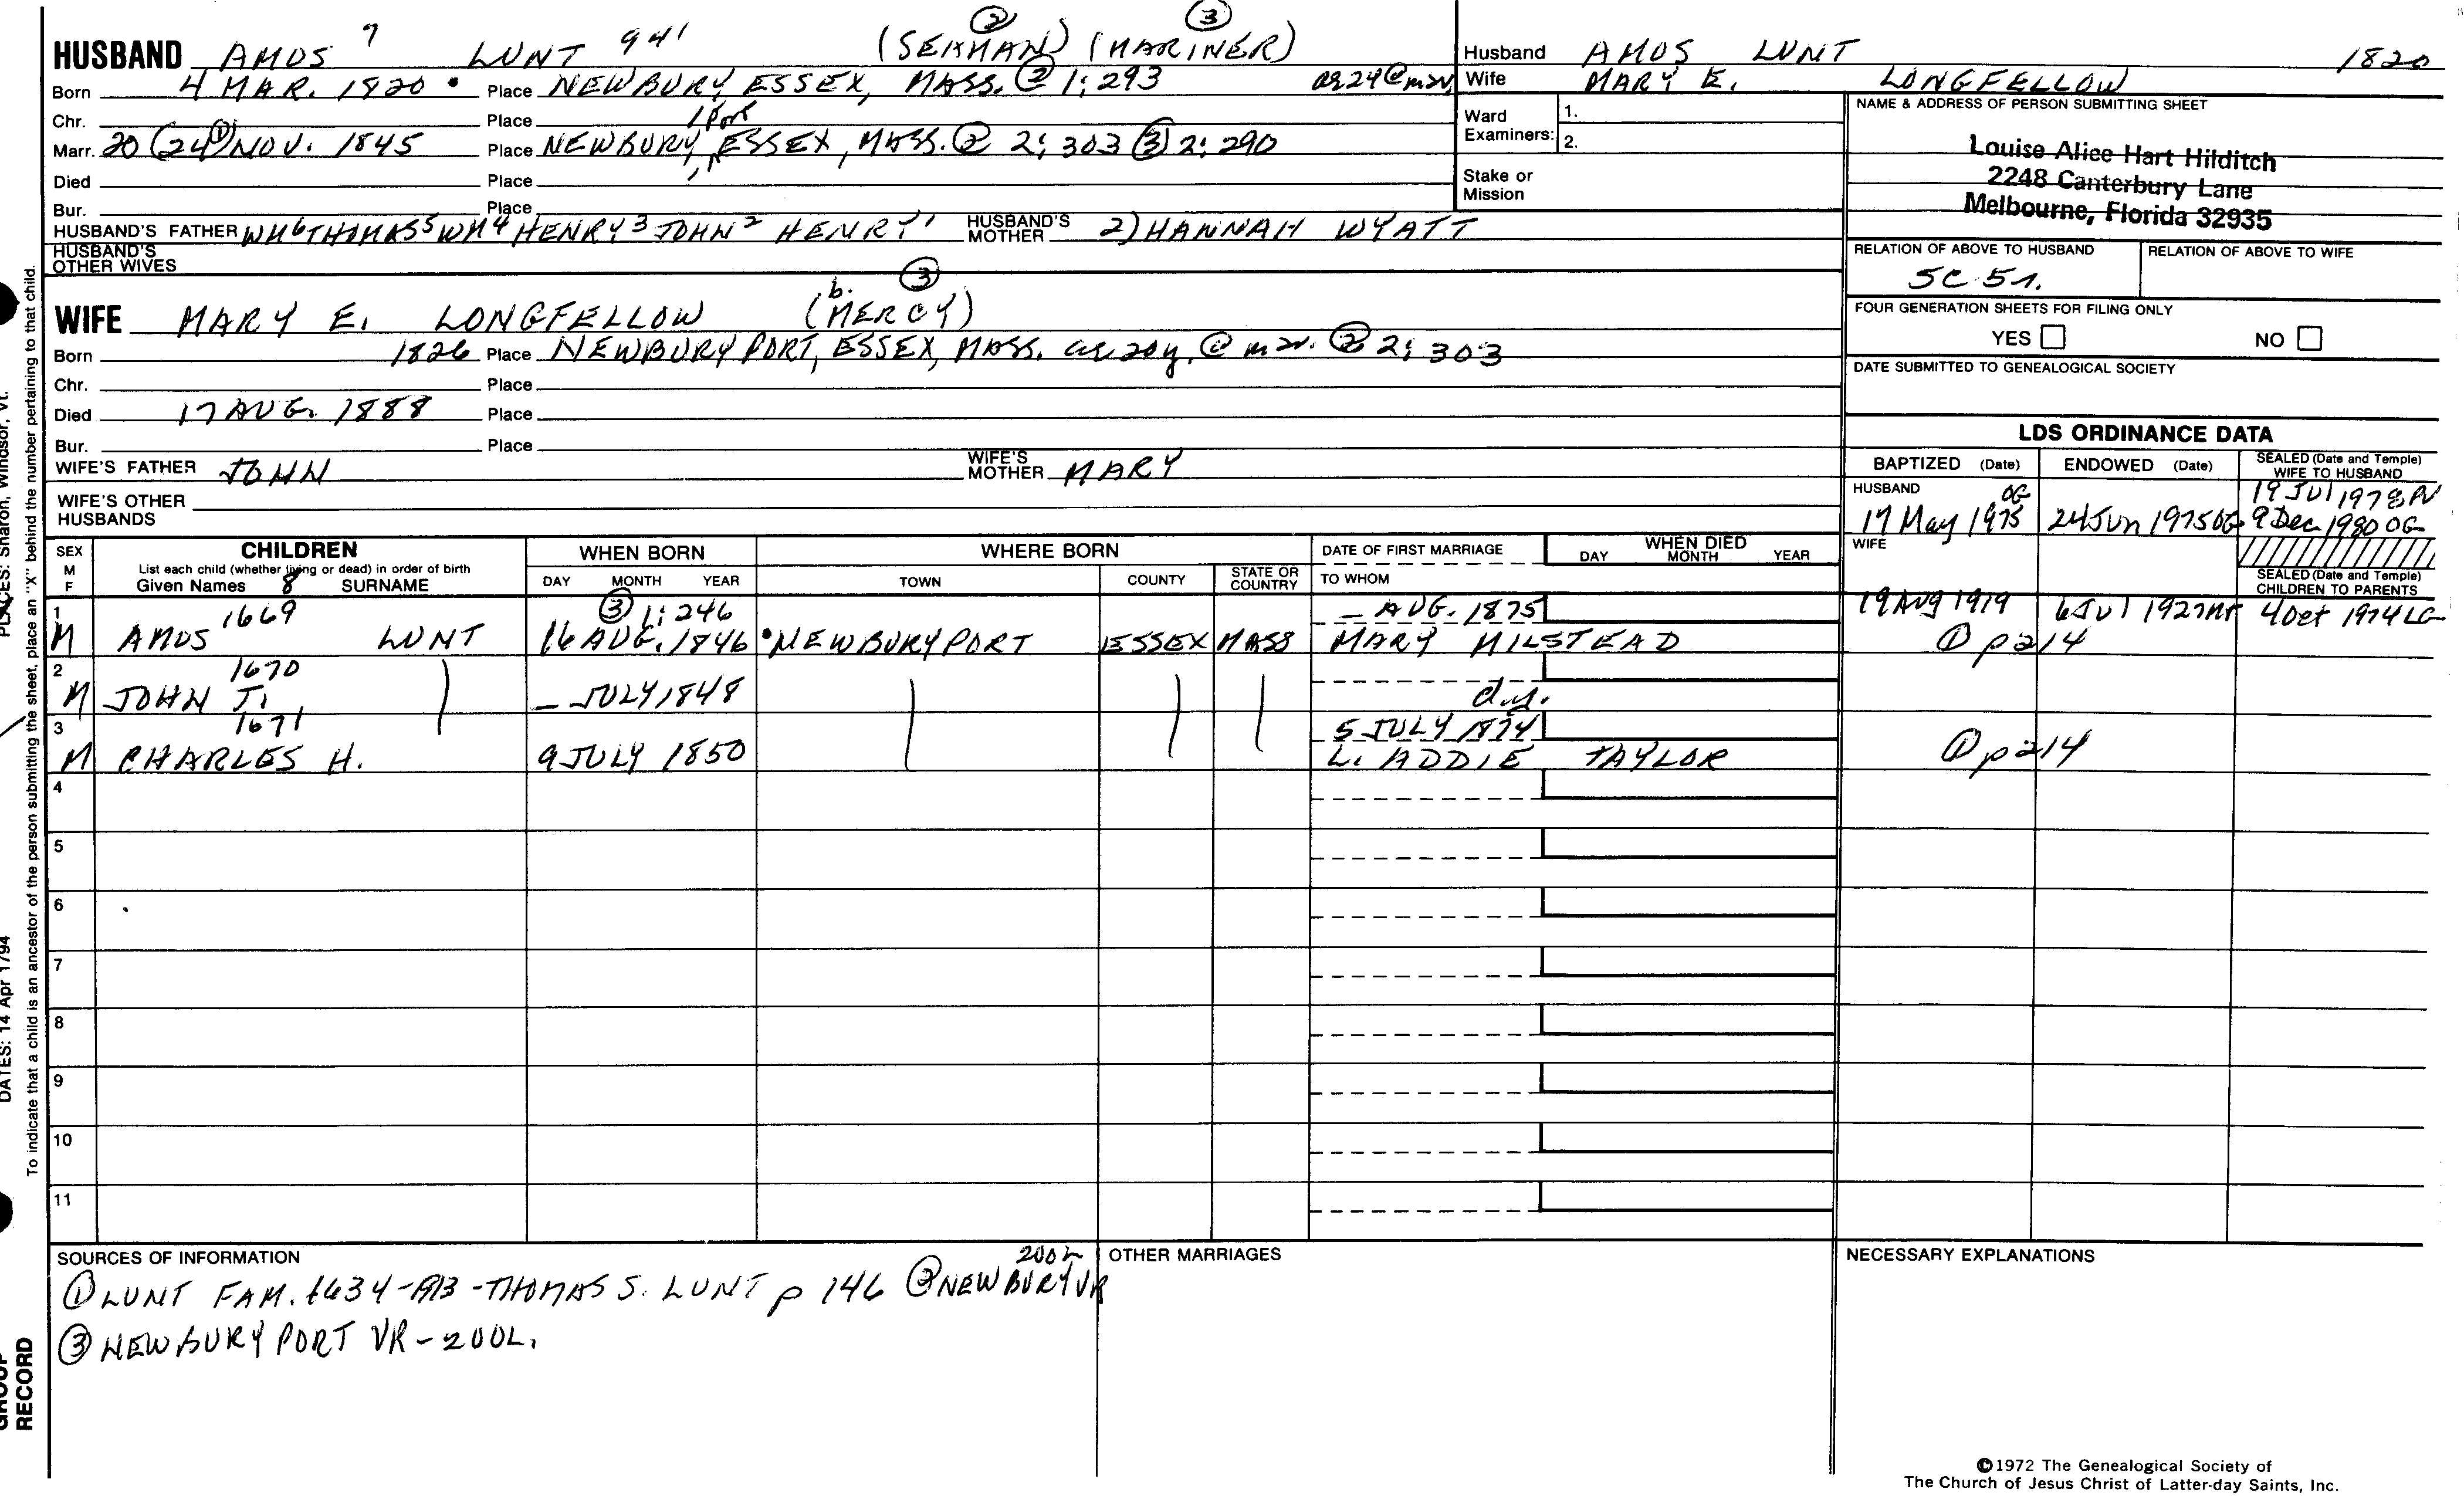 ② ③
HUSBAND AMOS 7 LUNT 941 (SEAMAN) (MARINER)
Born 4 MAR. 1820 • Place NEWBURY, ESSEX, MASS. @ 1:293 ae 24 @ mar
Chr. Place / Port
Marr. 20 (24① NOV. 1845 Place NEWBURY, ESSEX, MASS. ② 2:303 ③ 2:290
Died Place
Bur. Place
HUSBAND'S FATHER WM6 THOMAS5 WM4 HENRY3 JOHN2 HENRY1 HUSBAND'S MOTHER 2) HANNAH WYATT
HUSBAND'S OTHER WIVES
③
WIFE MARY E. LONGFELLOW b. (MERCY)
Born 1826 Place NEWBURYPORT, ESSEX, MASS. ae 20y. @ mar. ② 2:303
Chr. Place
Died 17 AUG. 1888 Place
Bur. Place
WIFE'S FATHER JOHN WIFE'S MOTHER MARY
WIFE'S OTHER HUSBANDS
Husband AMOS LUNT 1820
Wife MARY E. LONGFELLOW
Ward Examiners: 1.
2.
Stake or Mission
NAME & ADDRESS OF PERSON SUBMITTING SHEET
Louise Alice Hart Hilditch
2248 Canterbury Lane
Melbourne, Florida 32935
RELATION OF ABOVE TO HUSBAND RELATION OF ABOVE TO WIFE
FOUR GENERATION SHEETS FOR FILING ONLY
YES NO
DATE SUBMITTED TO GENEALOGICAL SOCIETY
LDS ORDINANCE DATA
BAPTIZED (Date) ENDOWED (Date) SEALED (Date and Temple) WIFE TO HUSBAND
HUSBAND OG 19 JUL 1978 PV
17 May 1975 24 Jun 1975 OG 9 Dec 1980 OG
WIFE
SEALED (Date and Temple) CHILDREN TO PARENTS
SEX M F CHILDREN WHEN BORN WHERE BORN DATE OF FIRST MARRIAGE WHEN DIED
List each child (whether living or dead) in order of birth
Given Names 8 SURNAME DAY MONTH YEAR TOWN COUNTY STATE OR COUNTRY TO WHOM DAY MONTH YEAR
1 1669 ③ 1:246 – AUG. 1875 19 Aug 1919 6 Jul 1927 4 Oct 1974 LG
M AMOS LUNT 16 AUG. 1846 • NEWBURYPORT ESSEX MASS MARY MILSTEAD ① p 214
2 1670
M JOHN J. – JULY 1848 d.y.
3 1671 5 JULY 1874
M CHARLES H. 9 JULY 1850 L. ADDIE TAYLOR ① p 214
4
5
6
7
8
9
10
11
SOURCES OF INFORMATION 200L OTHER MARRIAGES NECESSARY EXPLANATIONS
① LUNT FAM. 1634-1913 - THOMAS S. LUNT p 146 ② NEWBURY VR
③ NEWBURYPORT VR - 200L.
©1972 The Genealogical Society of
The Church of Jesus Christ of Latter-day Saints, Inc.
PLACES: Sharon, Windsor, Vt.
DATES: 14 Apr 1794
To indicate that a child is an ancestor of the person submitting the sheet, place an "X" behind the number pertaining to that child.
GROUP
RECORD